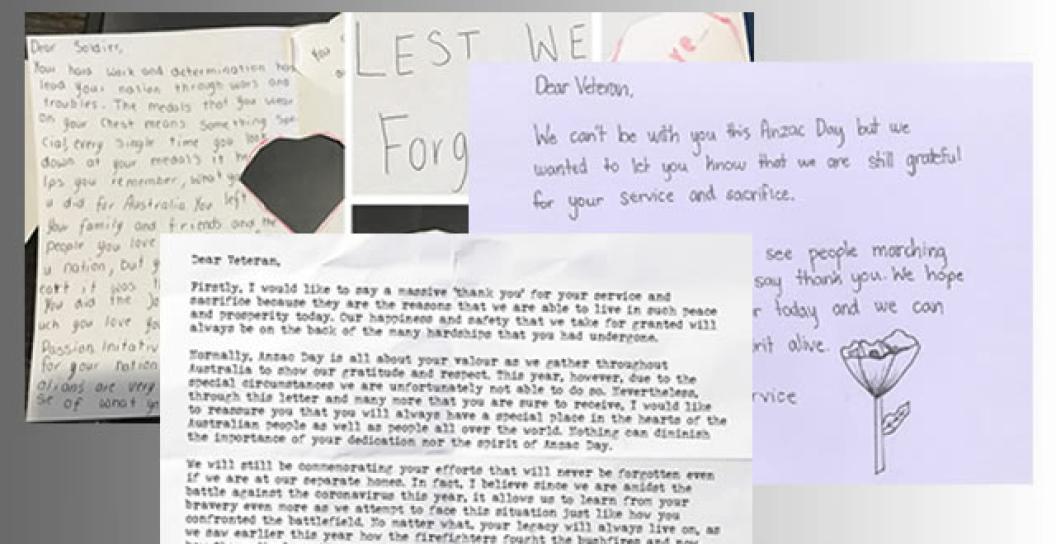 Dear Soldier,
Your hard work and determination has
lead your nation through wars and
troubles. The medals that you wear
on your chest means Something Spe
cial, every single time you look
down at your medals it he
lps you remember, what yo
u did for Australia You left
Your family and friends and the
people you love
u nation, but y
cort it was
You did the Jo
uch you love yo
Passion Initativ
for your nation
alians are very
se of what yo
You
LEST WE
Forg
re
Dear Veteran,
We can't be with you this Anzac Day but we
wanted to let you know that we are still grateful
for your service and sacrifice.
see people marching
say thank you. We hope
r today and we can
rit alive.
rvice
Dear Veteran,
Firstly, I would like to say a massive 'thank you' for your service and
sacrifice because they are the reasons that we are able to live in such peace
and prosperity today. Our happiness and safety that we take for granted will
always be on the back of the many hardships that you had undergone.
Normally, Anzac Day is all about your valour as we gather throughout
Australia to show our gratitude and respect. This year, however, due to the
special circumstances we are unfortunately not able to do so. Nevertheless,
through this letter and many more that you are sure to receive, I would like
to reassure you that you will always have a special place in the hearts of the
Australian people as well as people all over the world. Nothing can diminish
the importance of your dedication nor the spirit of Anzac Day.
We will still be commemorating your efforts that will never be forgotten even
if we are at our separate homes. In fact, I believe since we are amidst the
battle against the coronavirus this year, it allows us to learn from your
bravery even more as we attempt to face this situation just like how you
confronted the battlefield. No matter what, your legacy will always live on, as
we saw earlier this year how the firefighters fought the bushfires and now